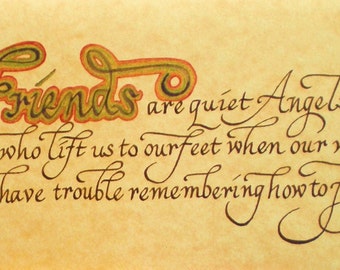 Friends are quiet Angels
who lift us to our feet when our
have trouble remembering how to